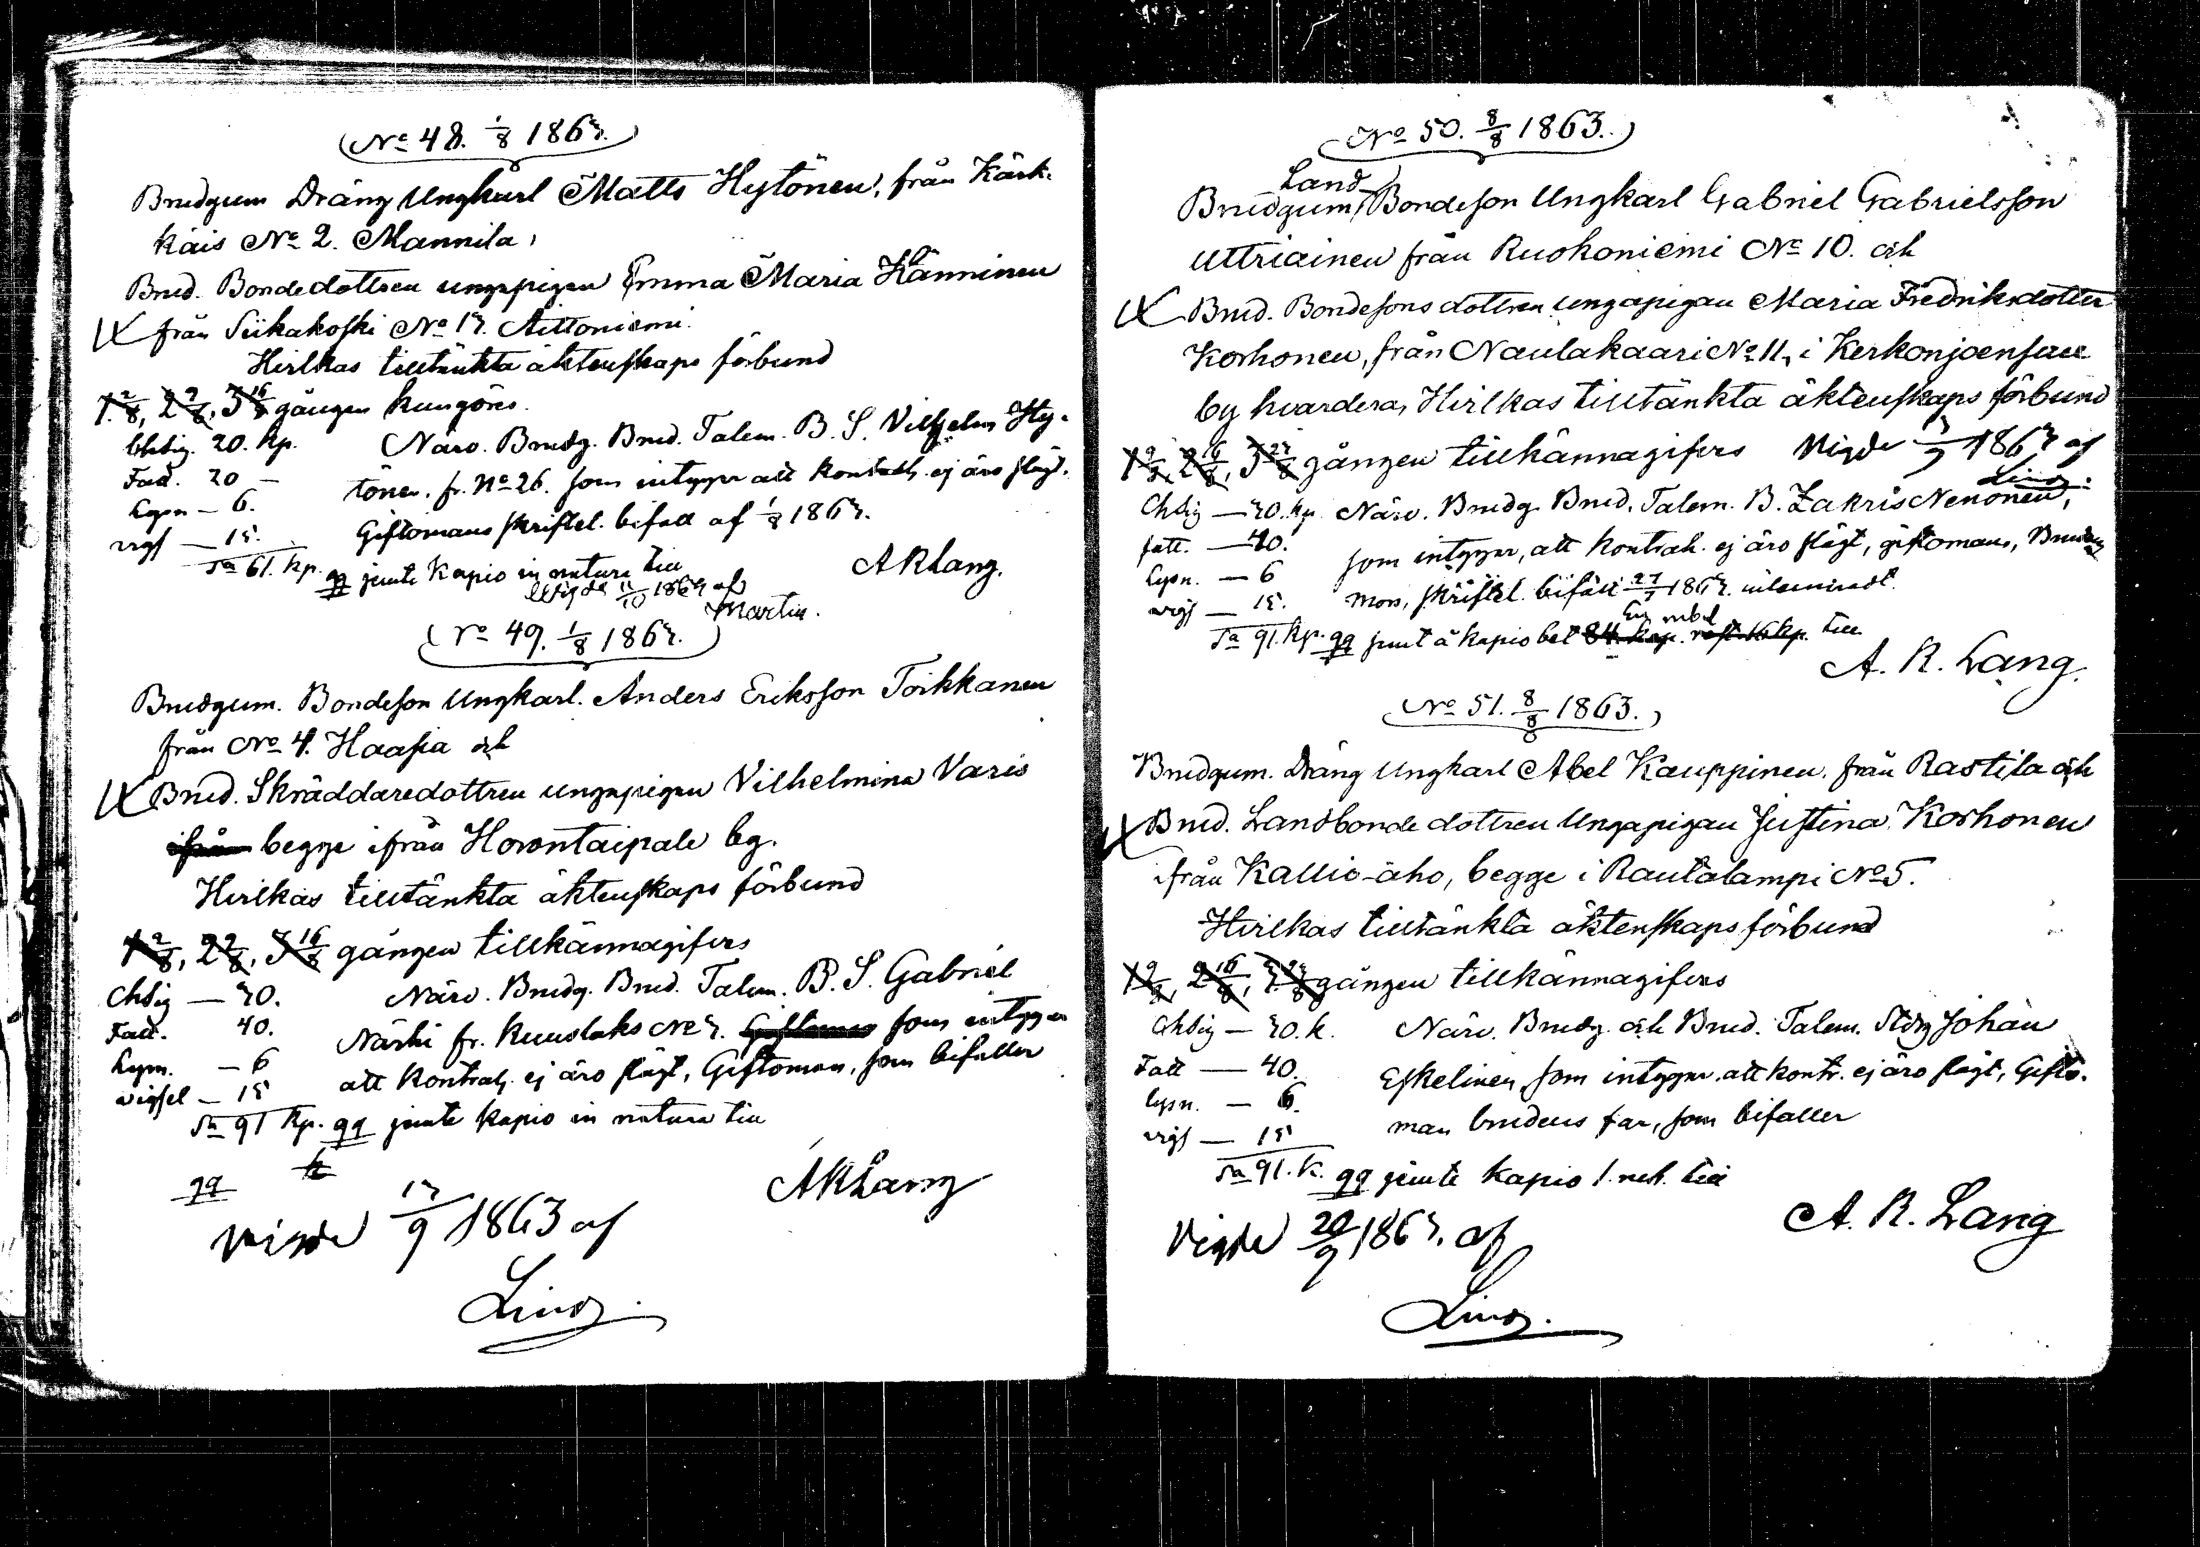 No 48. 1/8 1863.
Brudgum Dräng Ungkarl Matts Hytönen, från Kärk-
käis No 2. Mannila,
Brud. Bondedottren ungapigan Emma Maria Hänninen
från Siikakoski No 13. Aittoniemi.
Hvilkas tilltänkta äktenskaps förbund
1. 2/8, 2 9/8, 3 16/8 gången kungöres.
Chdig. 20. kp. Närv. Brudg. Brud. Talem. B. S. Vilhelm Hy-
Fatt. 20 — tönen. fr. No 26. som intygar att kontrah. ej äro slägt.
Lysn — 6. Giftomans skriftel. bifall af 1/8 1863.
vigs — 15.
Sa 61. kp. qq jemte Kapio in natura till
A R Lang.
Vigde 11/10 1863 af
Martin.
No 49. 1/8 1863.
Brudgum. Bondeson Ungkarl. Anders Eriksson Toikkanen
från No 4. Haasia och
Brud. Skräddaredottren ungapigan Vilhelmina Varis
ifrån begge ifrån Horontaipale by.
Hvilkas tilltänkta äktenskaps förbund
1 2/8, 2 9/8, 3 16/8 gången tillkännagifves
Chdig — 30. Närv. Brudg. Brud. Talem. B. S. Gabriel
Fatt. 40. Närhi fr. Kuuslaks No 3. som intygar
Lysn. — 6 att kontrah. ej äro slägt, Giftoman, som bifaller
vigsel — 15
Sa 91 kp. qq jemte kapio in natura till
qq
A R Lang
Vigde 13/9 1863 af
Lind.
No 50. 8/8 1863.
Land
Brudgum, Bondeson Ungkarl Gabriel Gabrielsson
Uttriainen från Ruokoniemi No 10. och
Brud. Bondesons dottren ungapigan Maria Fredriksdotter
Korhonen, från Naulakaari No 11, i Kerkonjoensuu
by hvardera, Hvilkas tilltänkta äktenskaps förbund
1 9/8, 2 16/8, 3 23/8 gången tillkännagifves Vigde 1863 af
Lind.
Chdig — 30. kp. Närv. Brudg. Brud. Talem. B. Zakris Nenonen,
fatt. — 40. som intygar, att kontrah. ej äro slägt, giftomans, Brudens
Lysn. — 6 mors, skriftel. bifall 27/7 1863. inlemnadt.
vigs — 15. En rubel
Sa 91. kp. qq jemt å kapio bet 84. kop. rest. 16 kp. till
A. R. Lang.
No 51. 8/8 1863.
Brudgum. Dräng Ungkarl Abel Kauppinen. från Rastila och
Brud. Landbonde dottren Ungapigan Justina Korhonen
ifrån Kallio-aho, begge i Rautalampi No 5.
Hvilkas tilltänkta äktenskaps förbund
1 9/8, 2 16/8, 3 23/8 gången tillkännagifves
Chdig — 30. k. Närv. Brudg. och Brud. Talem. Johan
Fatt — 40. Eskelinen, som intygar, att kontr. ej äro slägt, Gifto-
Lysn. — 6. man brudens far, som bifaller
vigs — 15
Sa 91. k. qq jemte kapio 1. rub. till
A. R. Lang
Vigde 20/9 1863. af
Lind.